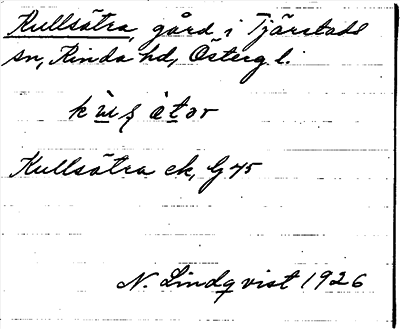 Kullsätra, gård i Tjärstads
sn, Kinda hd, Österg. l.
Kullsätra ek, G 45
N. Lindqvist 1926